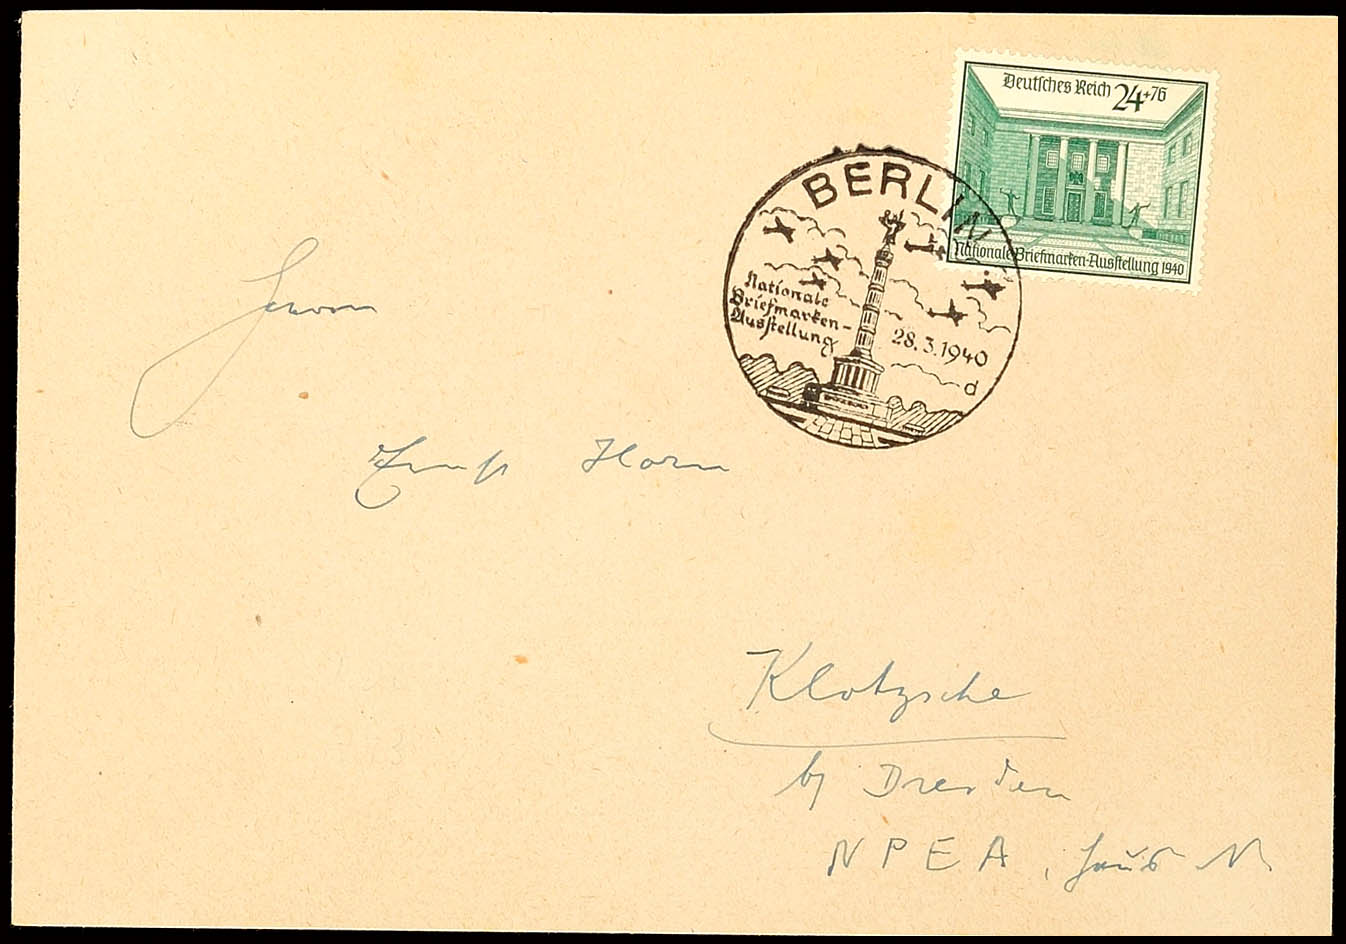 Deutsches Reich 24+76
Nationale Briefmarken-Ausstellung 1940
BERLIN
Nationale
Briefmarken-
Ausstellung
28.3.1940
d
Herrn
Ernst Horn
Klotzsche
b/ Dresden
NPEA, Haus N